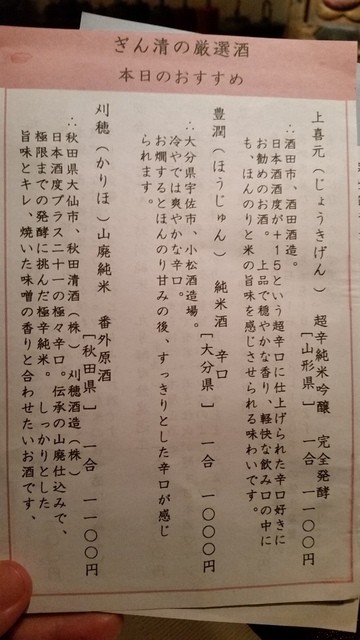 ぎん清の厳選酒
本日のおすすめ
上喜元（じょうきげん） 超辛純米吟醸 完全発酵
［山形県］ 一合 一一〇〇円
∴酒田市、酒田酒造。
日本酒度が＋１５という超辛口に仕上げられた辛口好きに
お勧めのお酒。 上品で穏やかな香り、軽快な飲み口の中に
も、ほんのりと米の旨味を感じさせられる味わいです。
豊潤（ほうじゅん） 純米酒 辛口
［大分県］ 一合 一〇〇〇円
∴大分県宇佐市、小松酒造場。
冷やでは爽やかな辛口。
お燗するとほんのり甘みの後、すっきりとした辛口が感じ
られます。
刈穂（かりほ）山廃純米 番外原酒
［秋田県］ 一合 一一〇〇円
∴秋田県大仙市、秋田清酒（株） 刈穂酒造（株）
日本酒度プラス二十一の極々辛口。伝承の山廃仕込みで、
極限までの発酵に挑んだ極辛純米。 しっかりとした
旨味とキレ、焼いた味噌の香りと合わせたいお酒です、